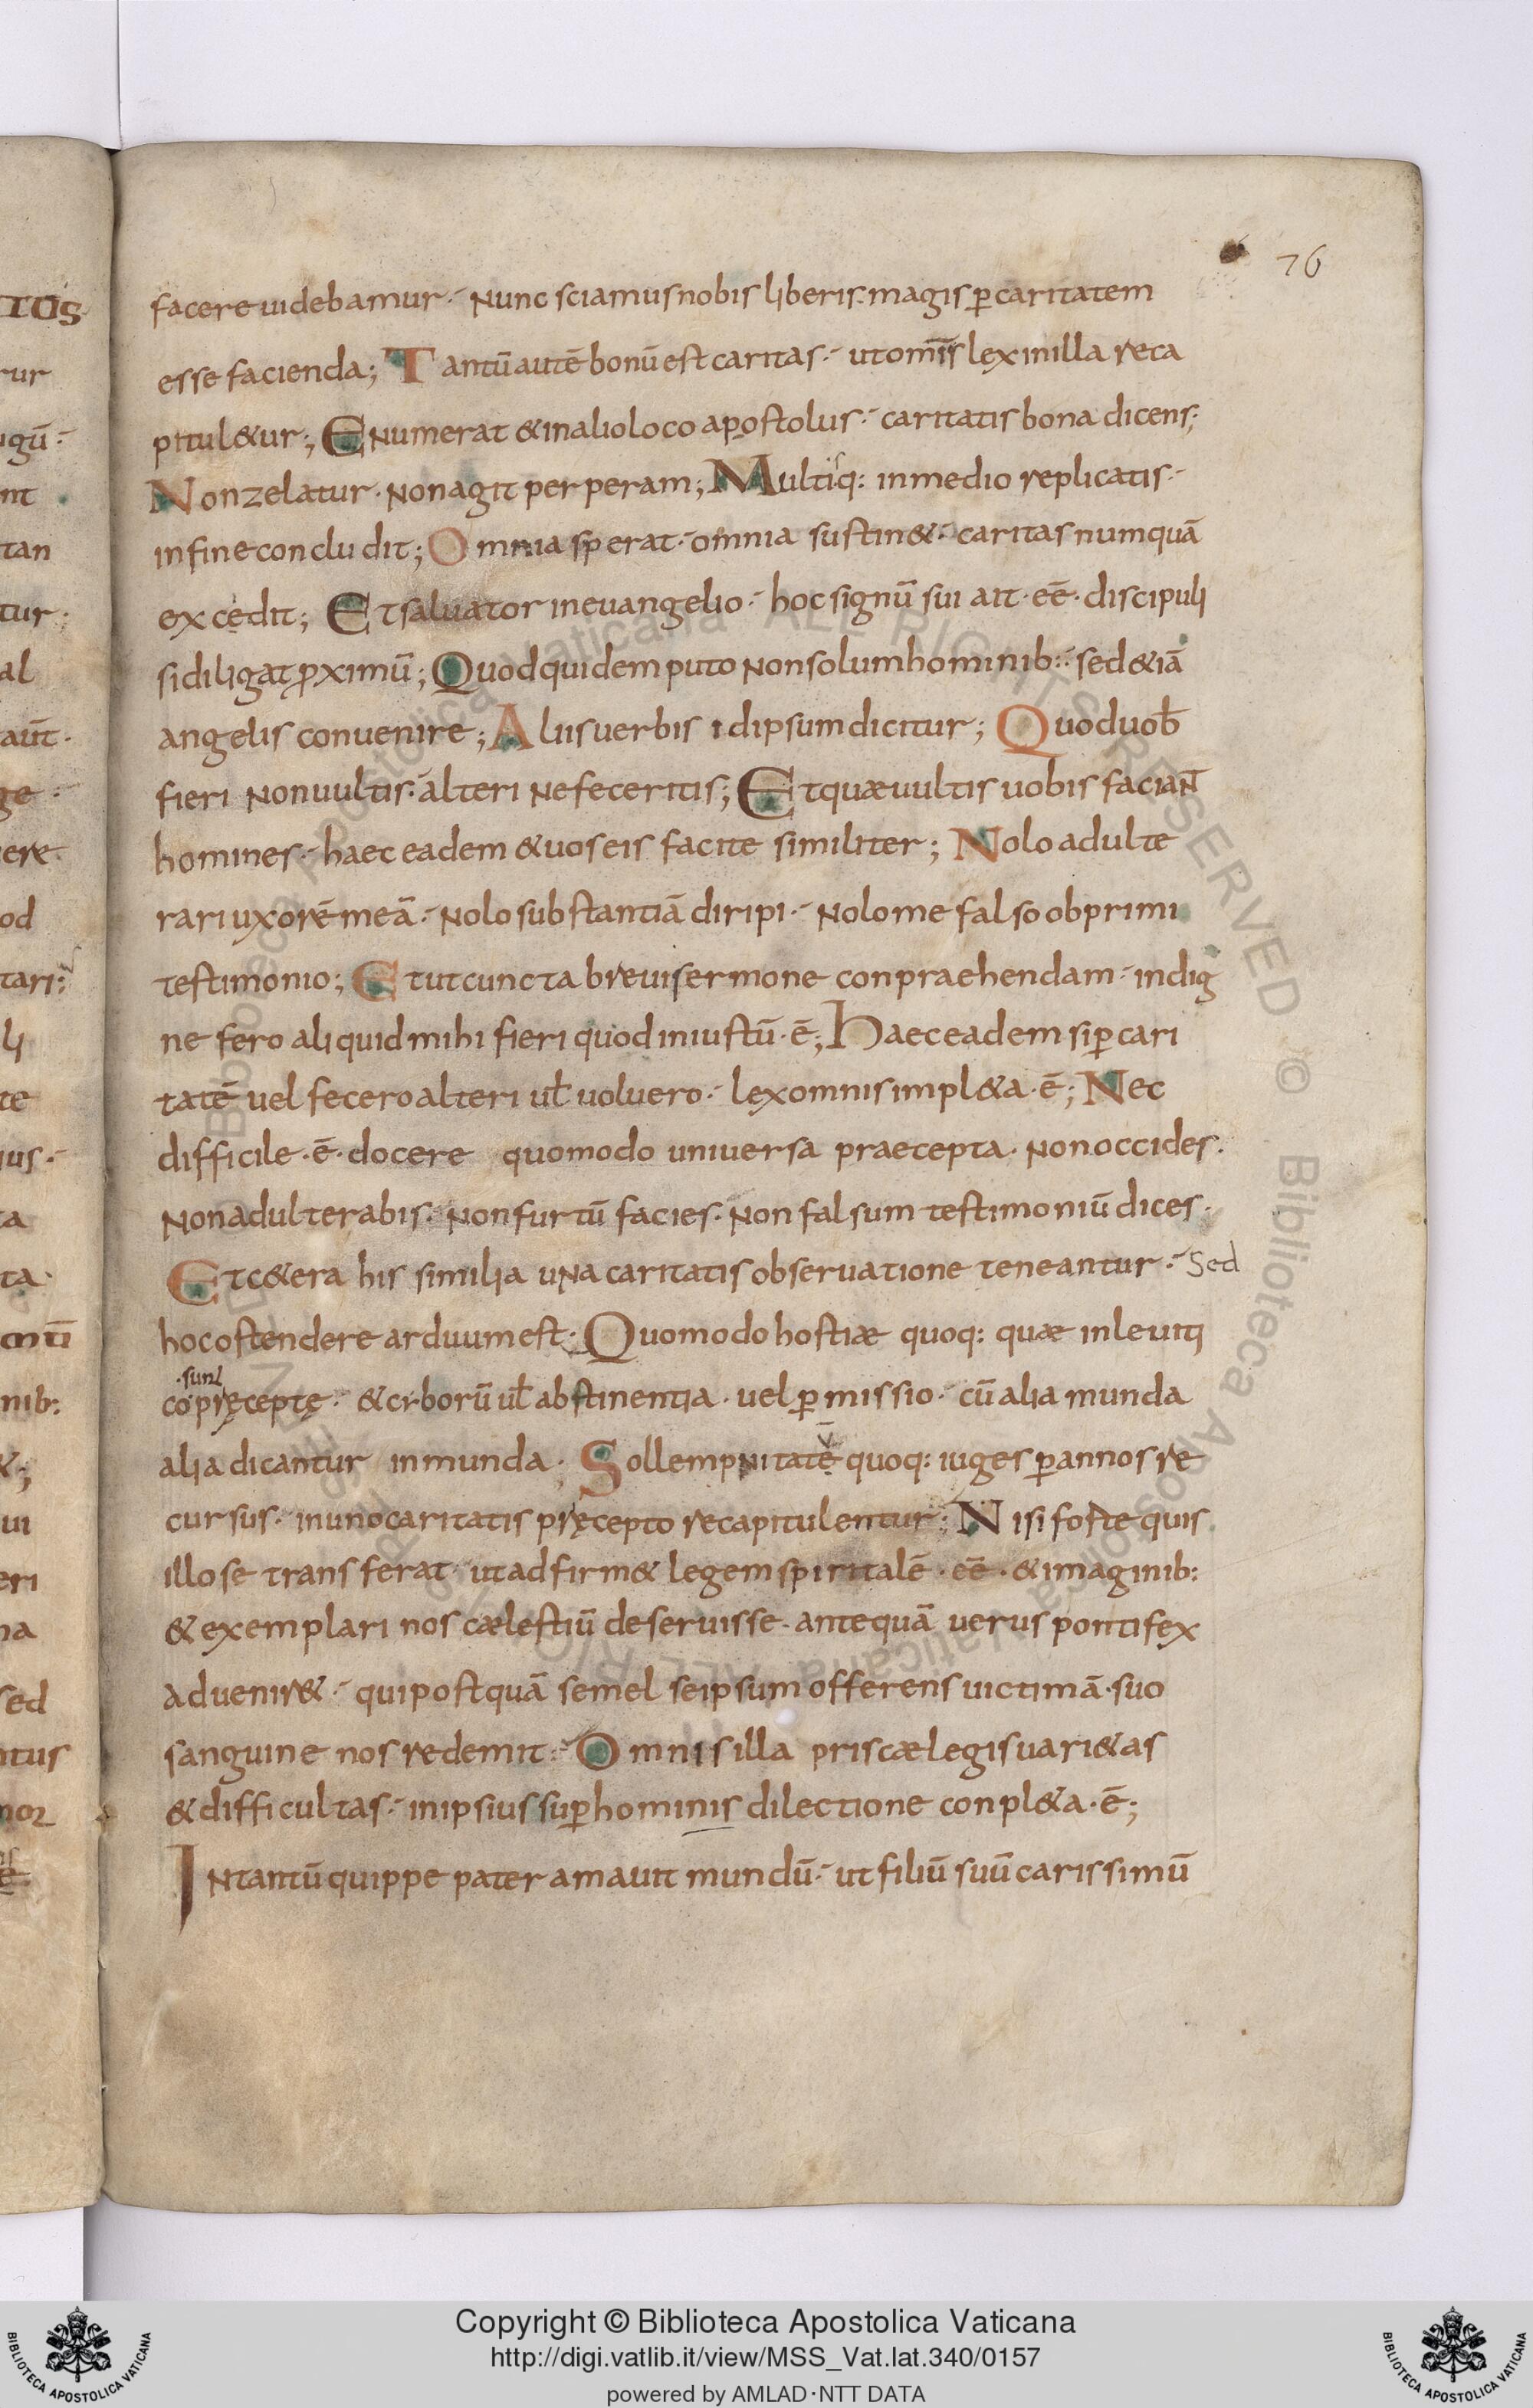 76
facere uidebamur· Nunc sciamus nobis liberis· magis p̄ caritatem
esse facienda; Tantū autē bonū est caritas· ut om̄is lex in illa reca
pitul&ur; Enumerat & in alio loco apostolus· caritatis bona dicens;
Non zelatur· Non agit perperam; Multisq: in medio replicatis·
in fine concludit; Omnia sperat· omnia sustin&· caritas numquā
excędit; Et saluator in euangelio· hoc signū sui ait· eē· discipuli
si diligat p̄ximū; Quod quidem puto Non solum hominib:· sed &iā
angelis conuenire; Aliis uerbis idipsum dicitur; Quod uob̄
fieri Non uultis· alteri Ne feceritis; Et quæ uultis uobis facian̄t
homines· haec eadem & uos eis facite similiter; Nolo adulte
rari uxorē meā· Nolo substantiā diripi· Nolo me falso obprimi
testimonio; Et ut cuncta breui sermone conpraehendam· indig
ne fero aliquid mihi fieri quod iniustū· ē; Haec eadem si p̄ cari
tatē uel fecero alteri ul̄ uoluero· lex omnis impl&a· ē; Nec
difficile· ē· docere quomodo uniuersa praecepta· Non occides·
Non adulterabis· Non furtū facies· Non falsum testimoniū dices·
Et c&era his similia una caritatis obseruatione teneantur· Sed
hoc ostendere arduum est· Quomodo hostiæ quoq: quæ in leuiti
·sunt
co pręceptę· & ciborū ul̄ abstinentia· uel p̄missio· cū alia munda
alia dicantur inmunda· Sollempnitatē quoq: iuges p̄ annos re
cursus· in uno caritatis pręcepto recapitulentur; Nisi fofte quis
illo se transferat· ut adfirm& legem spiritalē· eē· & imaginib:
& exemplari nos cælestiū deseruisse· antequā uerus pontifex
aduenir&· qui postquā semel seipsum offerens uictimā· suo
sanguine nos redemit· Omnis illa priscæ legis uari&as
& difficultas· in ipsius sup̄ hominis dilectione conpl&a· ē;
INtantū quippe pater amauit mundū· ut filiū suū carissimū
Copyright © Biblioteca Apostolica Vaticana
http://digi.vatlib.it/view/MSS_Vat.lat.340/0157
powered by AMLAD·NTT DATA
BIBLIOTECA APOSTOLICA VATICANA
BIBLIOTECA APOSTOLICA VATICANA